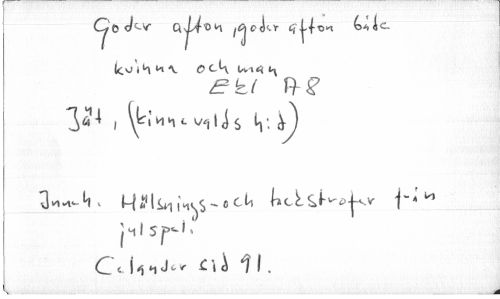 Goder afton, goder afton både
kvinna och man
Ekl A8
Jät, (kinnevalds h:d)
Inneh. Hälsnings- och tackstrofer från
julspel.
Celander sid 91.